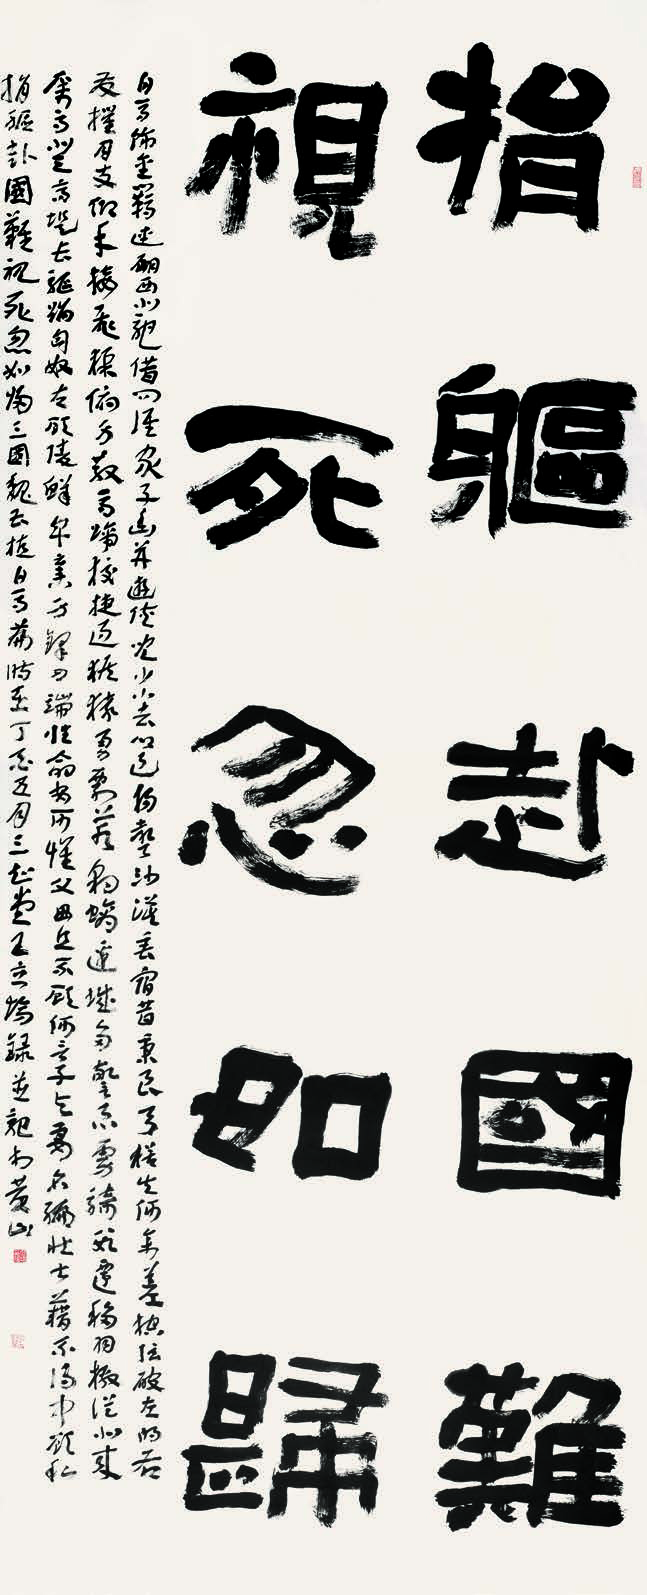 捐軀赴國難
視死忽如歸
白馬飾金羈連翩西北馳借問誰家子幽并遊俠兒少小去鄉邑揚聲沙漠垂宿昔秉良弓楛矢何參差控弦破左的右
發摧月支仰手接飛猱俯身散馬蹄狡捷過猴猿勇剽若豹螭邊城多警急虜騎數遷移羽檄從北來
厲馬登高堤長驅蹈匈奴左顧陵鮮卑棄身鋒刃端性命安可懷父母且不顧何言子與妻名編壯士籍不得中顧私
捐軀赴國難視死忽如歸三國魏曹植白馬篇時在丁亥五月三堂王立錄並記於黃山